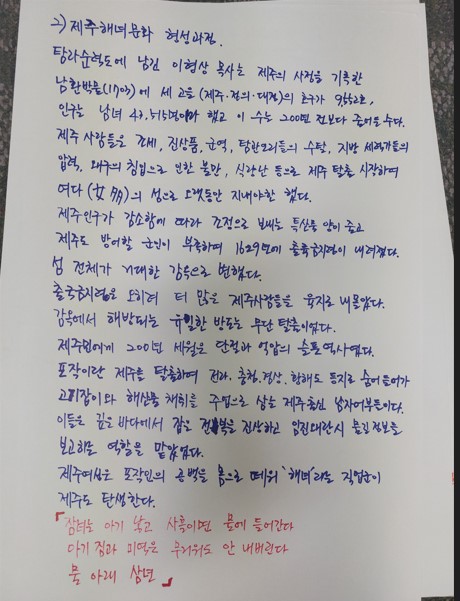 2) 제주해녀문화 형성과정.
탐라순력도에 남긴 이형상 목사는 제주의 사정을 기록한
남환박물(1703)에 세 고을(제주·정의·대정)의 호구가 9552호,
인구는 남녀 43,515명이라 했고 이 수는 200년 전보다 줄어든 수다.
제주 사람들은 조세, 진상품, 군역, 탐관오리들의 수탈, 지방 세력가들의
압력, 왜구의 침입으로 인한 불만, 식량난 등으로 제주 탈출 시작하여
여다(女多)의 섬으로 오랫동안 지내야만 했다.
제주인구가 감소함에 따라 조정으로 보내는 특산물 양이 줄고
제주도 방어할 군인이 부족하여 1629년에 출륙금지령이 내려졌다.
섬 전체가 거대한 감옥으로 변했다.
출륙금지령은 오히려 더 많은 제주사람들을 육지로 내몰았다.
감옥에서 해방되는 유일한 방도는 무단 탈출이었다.
제주민에게 200년 세월은 단절과 억압의 슬픈역사였다.
포작이란 제주를 탈출하여 전라·충청·경상·황해도 등지로 숨어들어가
고기잡이와 해산물 채취를 주업으로 삼는 제주출신 남자어부들이다.
이들은 깊은 바다에서 잡은 전복을 진상하고 임진왜란시 물길정보를
보고하는 역할을 맡았었다.
제주여성은 포작인의 공백을 몸으로 떼워 '해녀'라는 직업군이
제주도 탄생한다.
「잠녀는 아기 낳고 사흘이면 물에 들어간다
아기 짐과 미역은 무거워도 안 내버린다
물 아래 삼년」